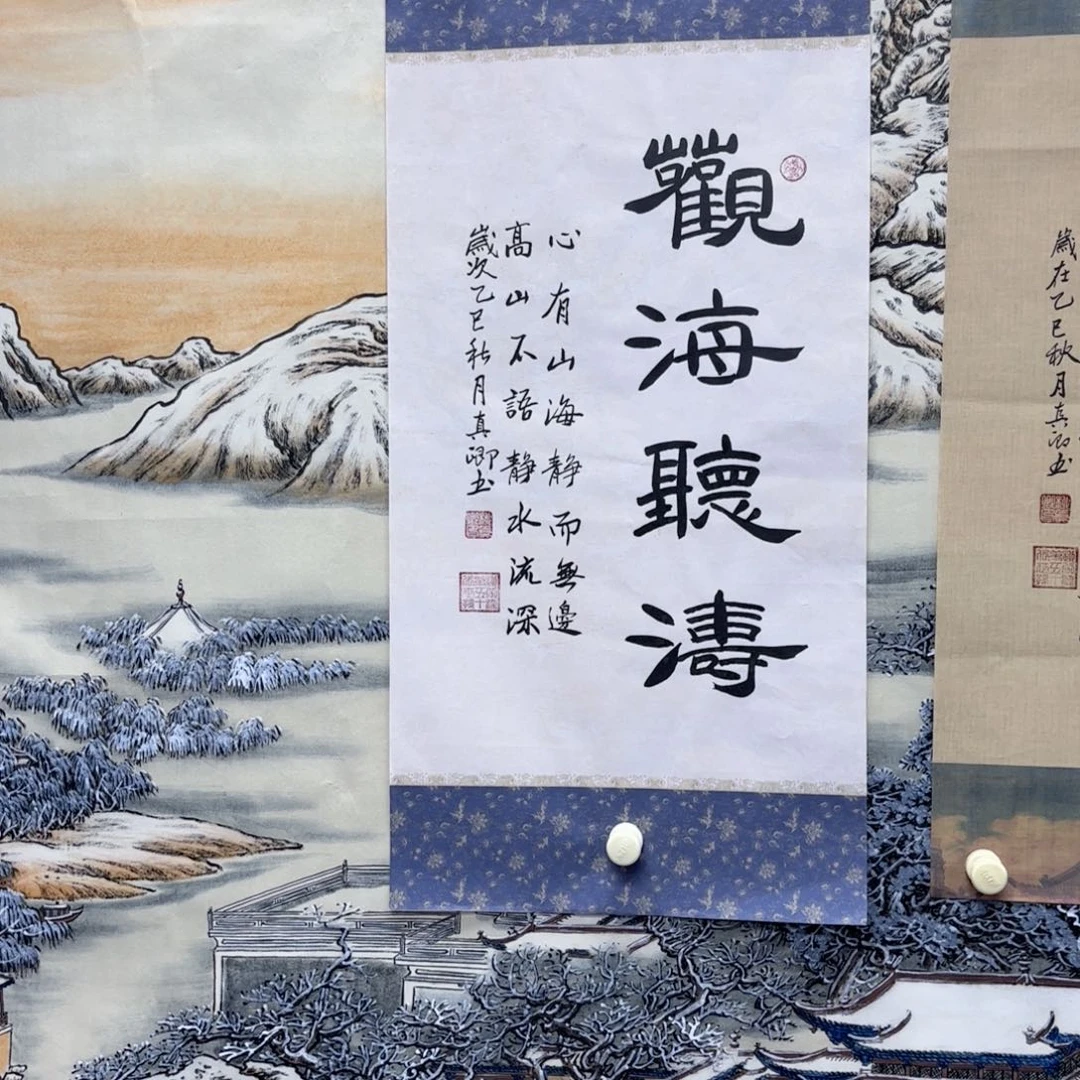 觀海聽濤
心有山海静而無邊
高山不語静水流深
歲次乙巳秋月真卿书
歲在乙巳秋月真卿书